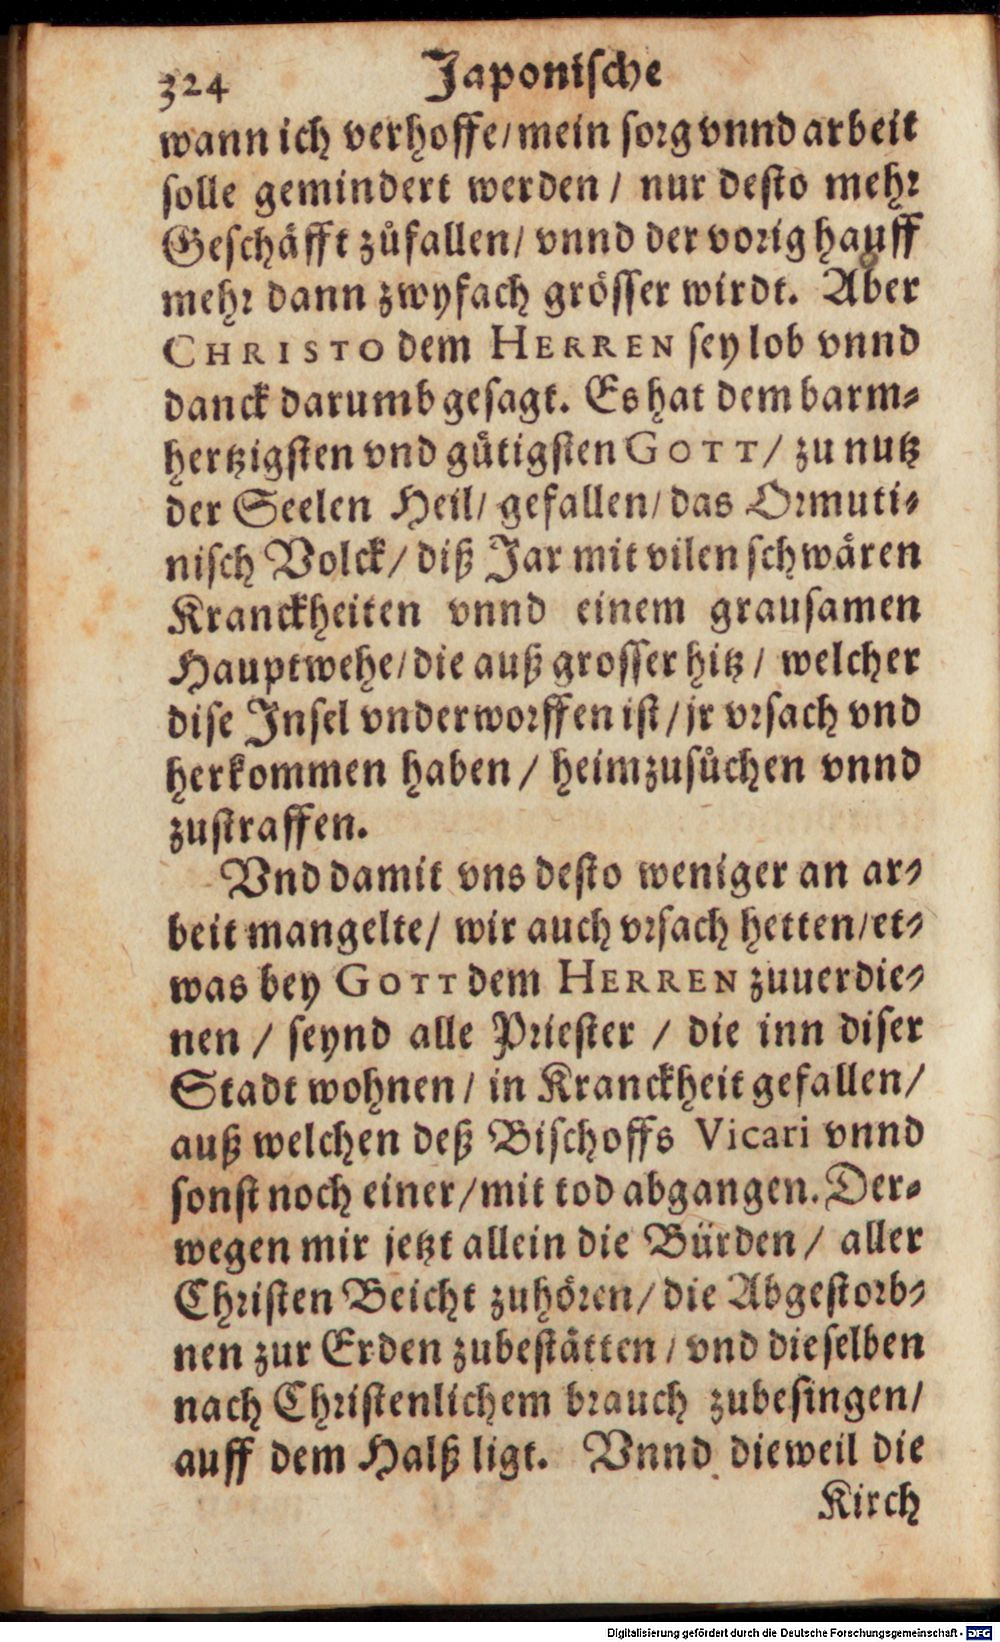 324 Japonische
wann ich verhoffe/ mein sorg vnnd arbeit
solle gemindert werden / nur desto mehr
Geschäfft zůfallen/ vnnd der vorig hauff
mehr dann zwyfach grösser wirdt. Aber
CHRISTO dem HERREN sey lob vnnd
danck darumb gesagt. Es hat dem barm-
hertzigsten vnd gütigsten GOTT/ zu nutz
der Seelen Heil/ gefallen/ das Ormuti-
nisch Volck/ diß Jar mit vilen schwären
Kranckheiten vnnd einem grausamen
Hauptwehe/ die auß grosser hitz/ welcher
dise Insel vnderworffen ist/ jr vrsach vnd
herkommen haben / heimzusůchen vnnd
zustraffen.
Vnd damit vns desto weniger an ar-
beit mangelte/ wir auch vrsach hetten/ et-
was bey GOTT dem HERREN zuuerdie-
nen / seynd alle Priester / die inn diser
Stadt wohnen / in Kranckheit gefallen/
auß welchen deß Bischoffs Vicari vnnd
sonst noch einer/ mit tod abgangen. Der-
wegen mir jetzt allein die Bürden/ aller
Christen Beicht zuhören/ die Abgestorb-
nen zur Erden zubestätten / vnd dieselben
nach Christenlichem brauch zubesingen/
auff dem Halß ligt. Vnnd dieweil die
Kirch
Digitalisierung gefördert durch die Deutsche Forschungsgemeinschaft - DFG